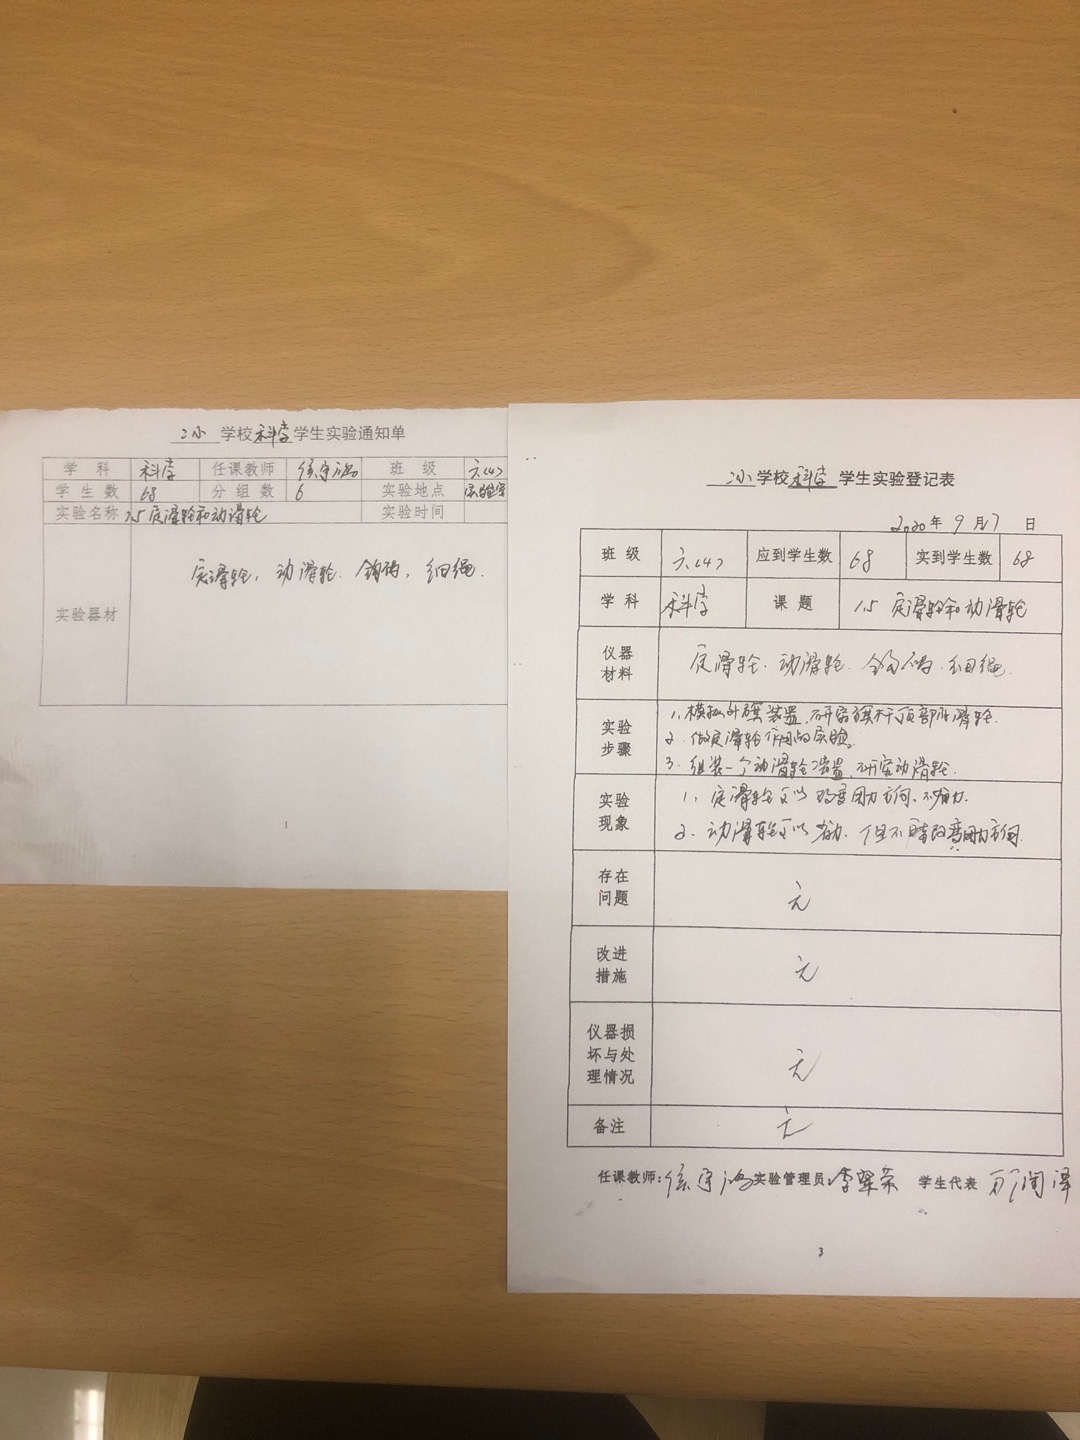 二小 学校 科学 学生实验通知单
学 科 科学 任课教师 侯宇鸿 班 级 六(4)
学 生 数 68 分 组 数 6 实验地点 实验室
实验名称 1.5 定滑轮和动滑轮 实验时间
实验器材 定滑轮, 动滑轮. 钩码, 细绳.
1
二小 学校 科学 学生实验登记表
2020 年 9 月 7 日
班 级 六(4) 应到学生数 68 实到学生数 68
学 科 科学 课 题 1.5 定滑轮和动滑轮
仪器
材料 定滑轮. 动滑轮. 钩码. 细绳.
实验
步骤 1. 模拟升旗装置, 研究旗杆顶部的滑轮.
2. 做定滑轮作用的实验。
3. 组装一个动滑轮装置, 研究动滑轮.
实验
现象 1. 定滑轮可以改变用力方向, 不省力.
2. 动滑轮可以省力. 但不能改变用力方向.
存在
问题 无
改进
措施 无
仪器损
坏与处
理情况 无
备注 无
任课教师: 侯宇鸿 实验管理员: 李翠荣 学生代表 润泽
3